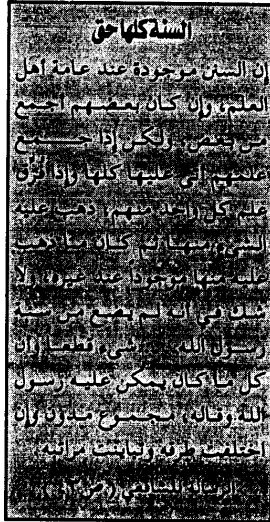 السنة كلها حق
إن السنن موجودة عند عامة أهل
العلم، وإن كان بعضهم أجمع
من بعض، ولكن إذا جمع
علمهم أتى عليها كلها وإذا فرق
علم كل واحد منهم، ذهب عليه
الشيء منها ثم كان ما ذهب
عليه منها موجودا عند غيره، ولا
شك في أنه لم يضع من سنة
رسول الله شيء، قطعا وأن
كل ما كان يمكن عليه رسول
الله وقاله، مجموع مدون وإن
اختلفت طرقه وتفاوتت مراتبه
الرسالة للشافعي (ص